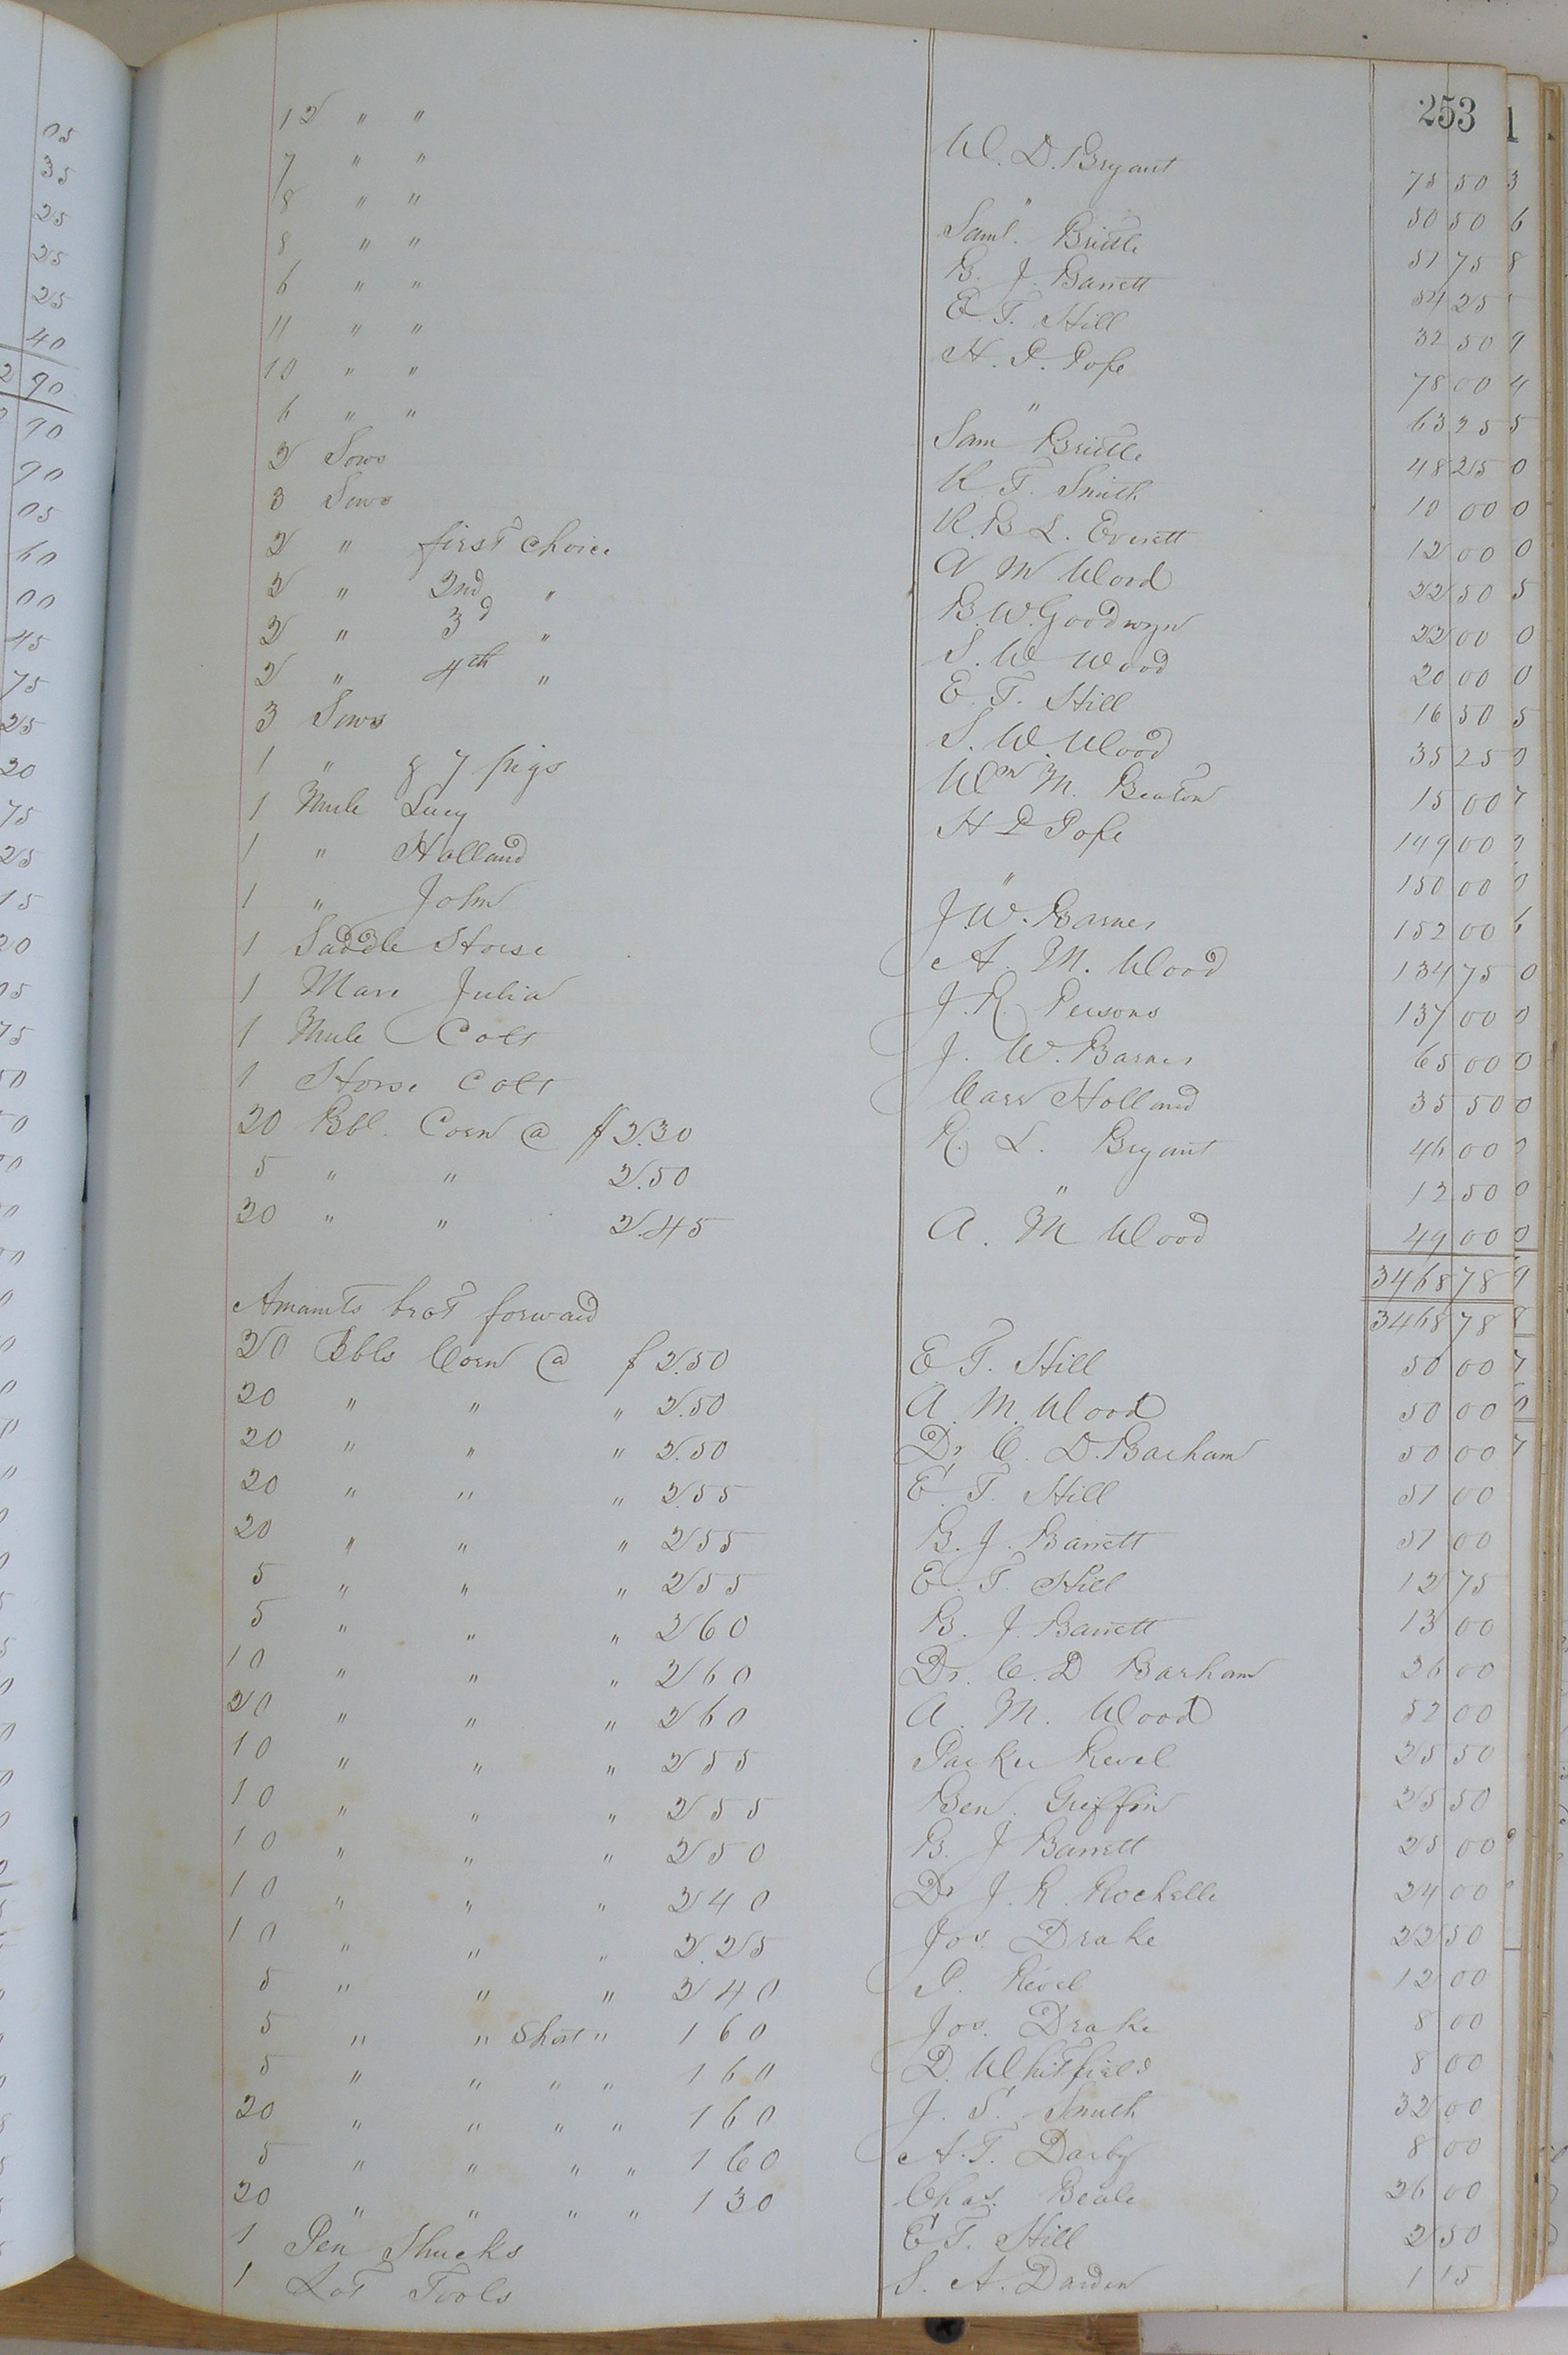 253
12 " " W. D. Bryant 75 50
7 " " " 50 50
8 " " Saml. Bristle 57 75
8 " " B. J. Barrett 54 25
6 " " E. T. Hill 32 50
11 " " H. P. Pope 78 00
10 " " " 63 25
6 " " Sam Bristle 48 25
2 Sows R. T. Smith 10 00
3 Sows R. B L. Everett 12 00
2 " first choice A M Wood 22 50
2 " 2nd " B. W. Goodwyn 22 00
2 " 3d " S. W Wood 20 00
2 " 4th " E. T. Hill 16 50
3 Sows S. W. Wood 35 25
1 " & 7 pigs Wm M. Beaton 15 00
1 Mule Lucy H P Pope 149 00
1 " Holland " 150 00
1 " John J. W. Barnes 152 00
1 Saddle Horse A. M. Wood 134 75
1 Mare Julia J. R. Persons 137 00
1 Mule Colt J. W. Barnes 65 00
1 Horse Colt Carr Holland 35 50
20 Bbl. Corn @ $ 2.30 R. L. Bryant 46 00
5 " " 2.50 " 12 50
20 " " 2.45 A. M Wood 49 00
3468 78
Amounts brot forward 3468 78
20 Bbls Corn @ $ 2.50 E. T. Hill 50 00
20 " " " 2.50 A. M. Wood 50 00
20 " " " 2.50 Dr C. D. Barham 50 00
20 " " " 2.55 E. T. Hill 51 00
20 " " " 2 55 B. J. Barrett 51 00
5 " " " 2 55 E. T. Hill 12 75
5 " " " 2 60 B. J. Barrett 13 00
10 " " " 2 60 Dr. C. D Barham 26 00
20 " " " 2 60 A. M. Wood 52 00
10 " " " 2 55 Parker Revel 25 50
10 " " " 2 55 Ben. Griffin 25 50
10 " " " 2 50 B. J Barrett 25 00
10 " " " 2 40 Dr J. R. Rochelle 24 00
10 " " " 2.25 Jos. Drake 22 50
5 " " " 2 40 P. Revel 12 00
5 " " Short " 1 60 Jos. Drake 8 00
5 " " " " 1 60 D. Whitfield 8 00
20 " " " " 1 60 J. S. Smith 32 00
5 " " " " 1 60 A. T. Darby 8 00
20 " " " " 1 30 Chas. Beale 26 00
1 Pen Shucks E T. Hill 2 50
1 Lot Tools S. A. Darden 1 15